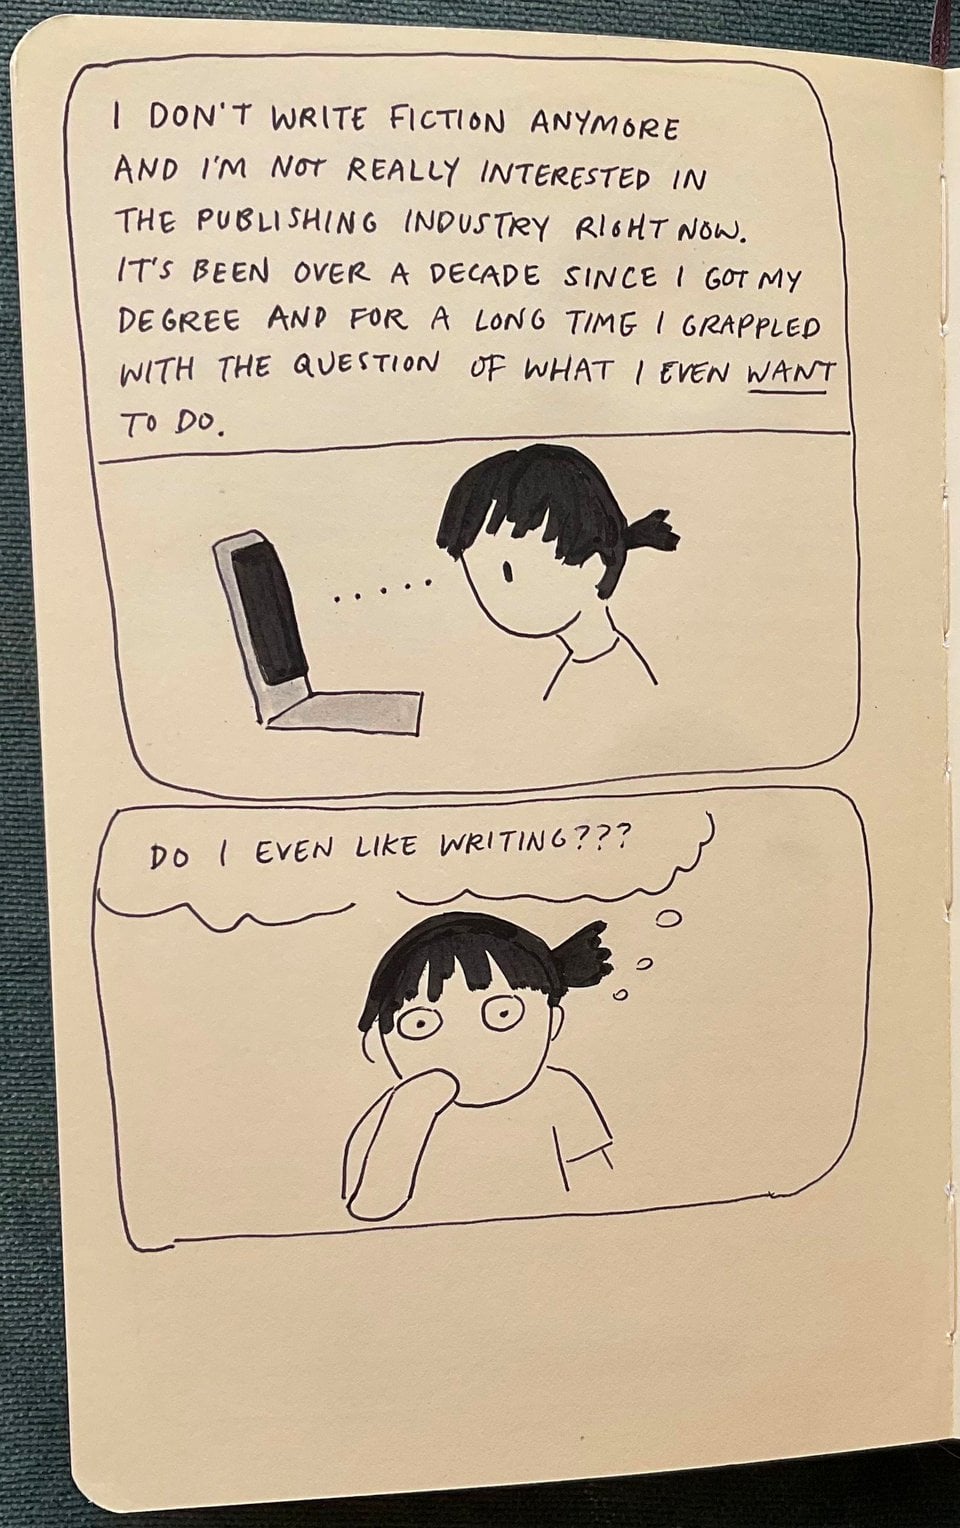 I DON'T WRITE FICTION ANYMORE
AND I'M NOT REALLY INTERESTED IN
THE PUBLISHING INDUSTRY RIGHT NOW.
IT'S BEEN OVER A DECADE SINCE I GOT MY
DEGREE AND FOR A LONG TIME I GRAPPLED
WITH THE QUESTION OF WHAT I EVEN WANT
TO DO.
DO I EVEN LIKE WRITING???